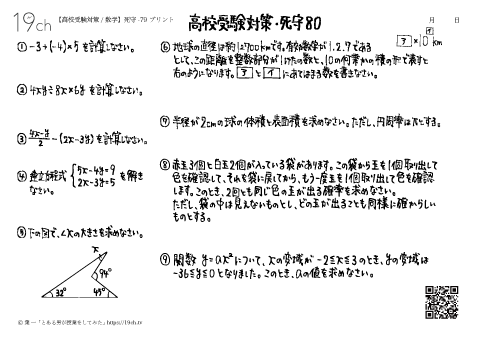 19ch
【高校受験対策/数学】死守-79 プリント
高校受験対策・死守80
月 日
① -3+(-4)×5 を計算しなさい。
② 4xy÷8x×6y を計算しなさい。
③ (4x-y)/2 -(2x-3y)を計算しなさい。
④ 連立方程式 { 5x-4y=9
2x-3y=5 を解き
なさい。
⑤ 下の図で、∠xの大きさを求めなさい。
x
94°
32°
45°
⑥ 地球の直径は約12700kmです。有効数字が1.2.7である
として、この距離を整数部分が1けたの数と、10の何乗かの積の形で表すと
右のようになります。 ア と イ にあてはまる数を書きなさい。
ア ×10 イ km
⑦ 半径が2cmの球の体積と表面積を求めなさい。ただし、円周率はπとする。
⑧ 赤玉3個と白玉2個が入っている袋があります。この袋から玉を1個取り出して
色を確認して、それを袋に戻してから、もう一度玉を1個取り出して色を確認
します。このとき、2回とも同じ色の玉が出る確率を求めなさい。
ただし、袋の中は見えないものとし、どの玉が出ることも同様に確からしい
ものとする。
⑨ 関数 y=ax²について、xの変域が -2≦x≦3のとき、yの変域は
-36≦y≦0となりました。このとき、aの値を求めなさい。
© 葉一「とある男が授業をしてみた」https://19ch.tv